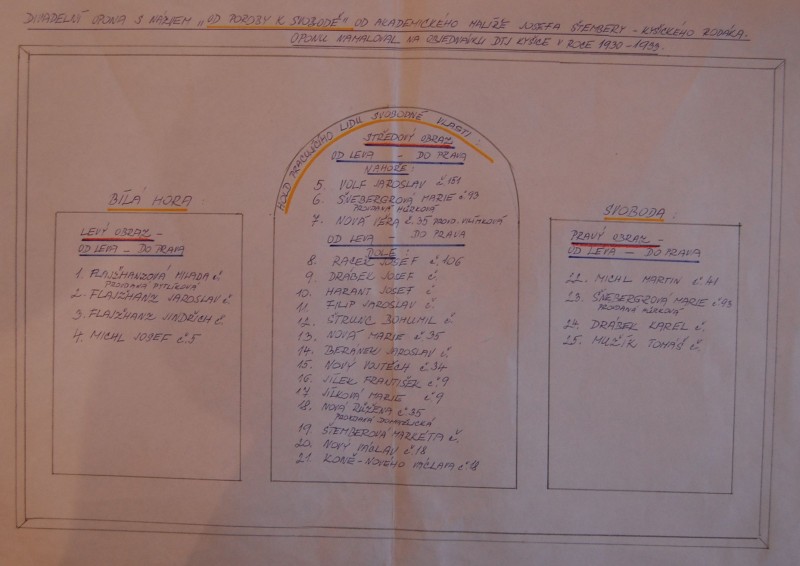 DIVADELNÍ OPONA S NÁZVEM „OD POROBY K SVOBODĚ" OD AKADEMICKÉHO MALÍŘE JOSEFA ŠTEMBERY - KYŠICKÉHO RODÁKA.
OPONU NAMALOVAL NA OBJEDNÁVKU DTJ KYŠICE V ROCE 1930-1933.
HOLD PRACUJÍCÍHO LIDU SVOBODNÉ VLASTI:
STŘEDOVÝ OBRAZ
OD LEVA - DO PRAVA
NAHOŘE:
5. VOLF JAROSLAV č.151
6. ŠNEBERGROVÁ MARIE č.93
PROVDANÁ
7. NOVÁ VĚRA č.35 PROVD.
OD LEVA - DO PRAVA
DOLE:
8. RACEK JOSEF č.106
9. DRÁBEK JOSEF č.
10. HARANT JOSEF č.
11. FILIP JAROSLAV č.
12. ŠTRUNC BOHUMIL č.
13. NOVÁ MARIE č.35
14. BERÁNEK JAROSLAV č.
15. NOVÝ VOJTĚCH č.34
16. JÍLEK FRANTIŠEK č.9
17. JÍLKOVÁ MARIE č.9
18. NOVÁ RŮŽENA č.35
PROVDANÁ
19. ŠTEMBEROVÁ MARKÉTA č.
20. NOVÝ VÁCLAV č.18
21. KONĚ - NOVÉHO VÁCLAVA č.18
BÍLÁ HORA:
LEVÝ OBRAZ -
OD LEVA - DO PRAVA
1. FLAJŽHANZOVÁ MILADA č.
PROVDANÁ PYTLÍKOVÁ
2. FLAJŽHANZ JAROSLAV č.
3. FLAJŽHANZ JINDŘICH č.
4. MICHL JOSEF č.5
SVOBODA:
PRAVÝ OBRAZ -
OD LEVA - DO PRAVA
22. MICHL MARTIN č.41
23. ŠNEBERGROVÁ MARIE č.93
PROVDANÁ
24. DRÁBEK KAREL č.
25. MUŽÍK TOMÁŠ č.